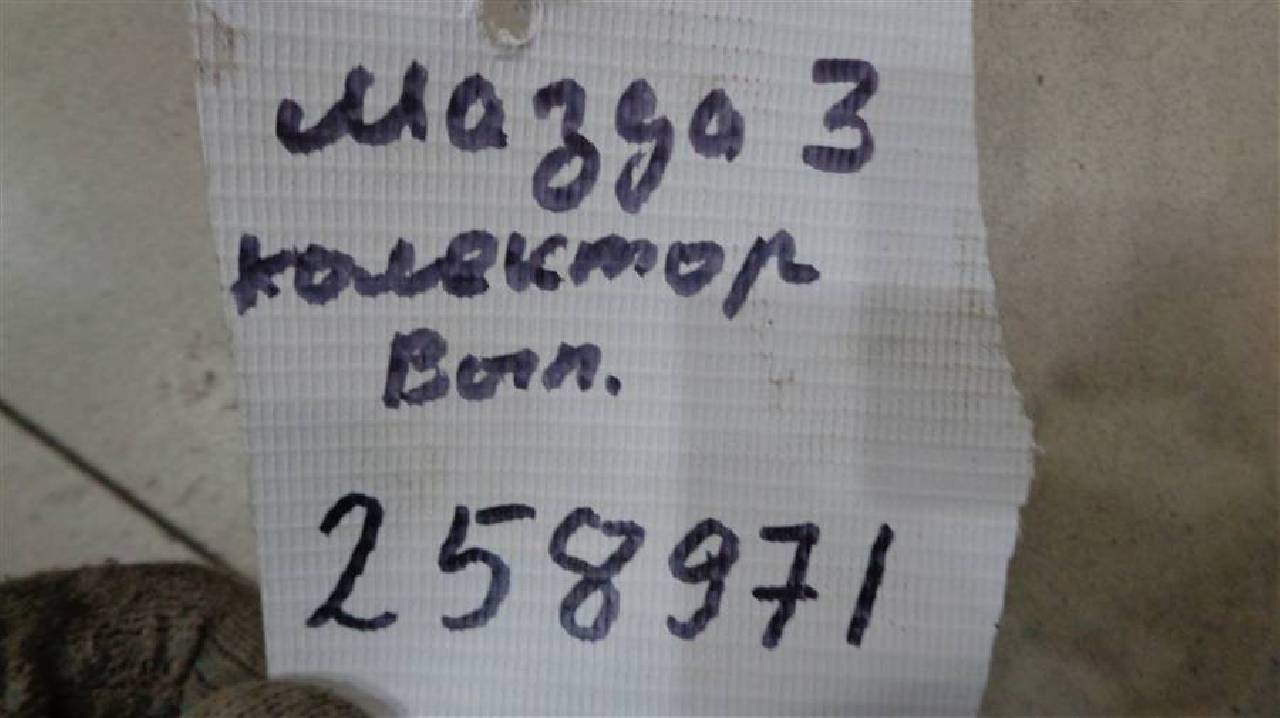 Мазда 3
колектор
Вып.
258971